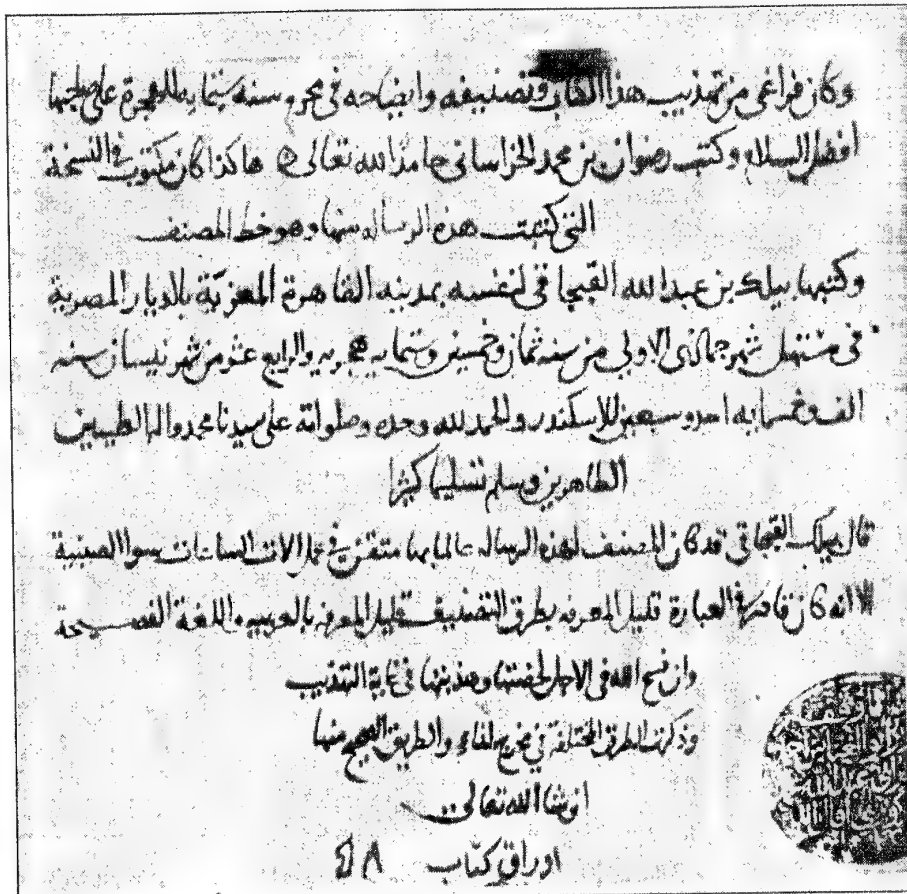 وكان فراغى من تهذيب هذا الكتاب وتصنيفه وايضاحه فى محرم سنه ستمايه للهجرة على صاحبها
افضل السلام وكتب رضوان بن محمد الخراسانى حامدًا لله تعالى هاكذا كان مكتوب فى النسخة
التى كتبت هذه الرساله منها وهو خط المصنف
وكتبها بيلك بن عبد الله القبجاقى لنفسه بمدينه القاهرة المعزيّة بالديار المصرية
فى مستهل شهر جمادى الاولى من سنه ثمان وخمسين وستمايه هجريه والرابع عشر من شهر نيسان سنه
الف وخمسمايه احد وسبعين للاسكندر والحمد لله وحده وصلواته على سيدنا محمد واله الطيبين
الطاهرين وسلم تسليما كثيرا
قال بيلك القبجاقى قد كان المصنف لهذه الرساله عالما بها متقن فى عمل الات الساعات سوا الصينية
الا انه كان قاصرا فى العبارة قليل المعرفه بطرق التصنيف قليل المعرفه بالعربيه واللغة الفصيحة
وان فسح الله فى الاجل لخصتها وهذبتها فى غاية التهذيب
وذكرت الطرق المختلفة فى والطريق الصحيح منها
ان شا الله تعالى
اوراق كتاب